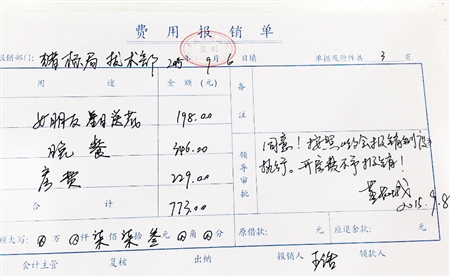 费用报销单
报销部门:猪标局技术部 2015年9月6日填 单据及附件共3页
用途 金额(元) 备注
女朋友 198.00
晚餐 346.00
房费 229.00
合计 773.00
领导审批
同意!按照 约会报销制度
执行。开房费不予报销!
2015.9.8
额大写:⊗万⊗仟柒佰柒拾叁元⊗角⊗分 原借款: 元 应退余款: 元
会计主管 复核 出纳 报销人 王浩 领款人